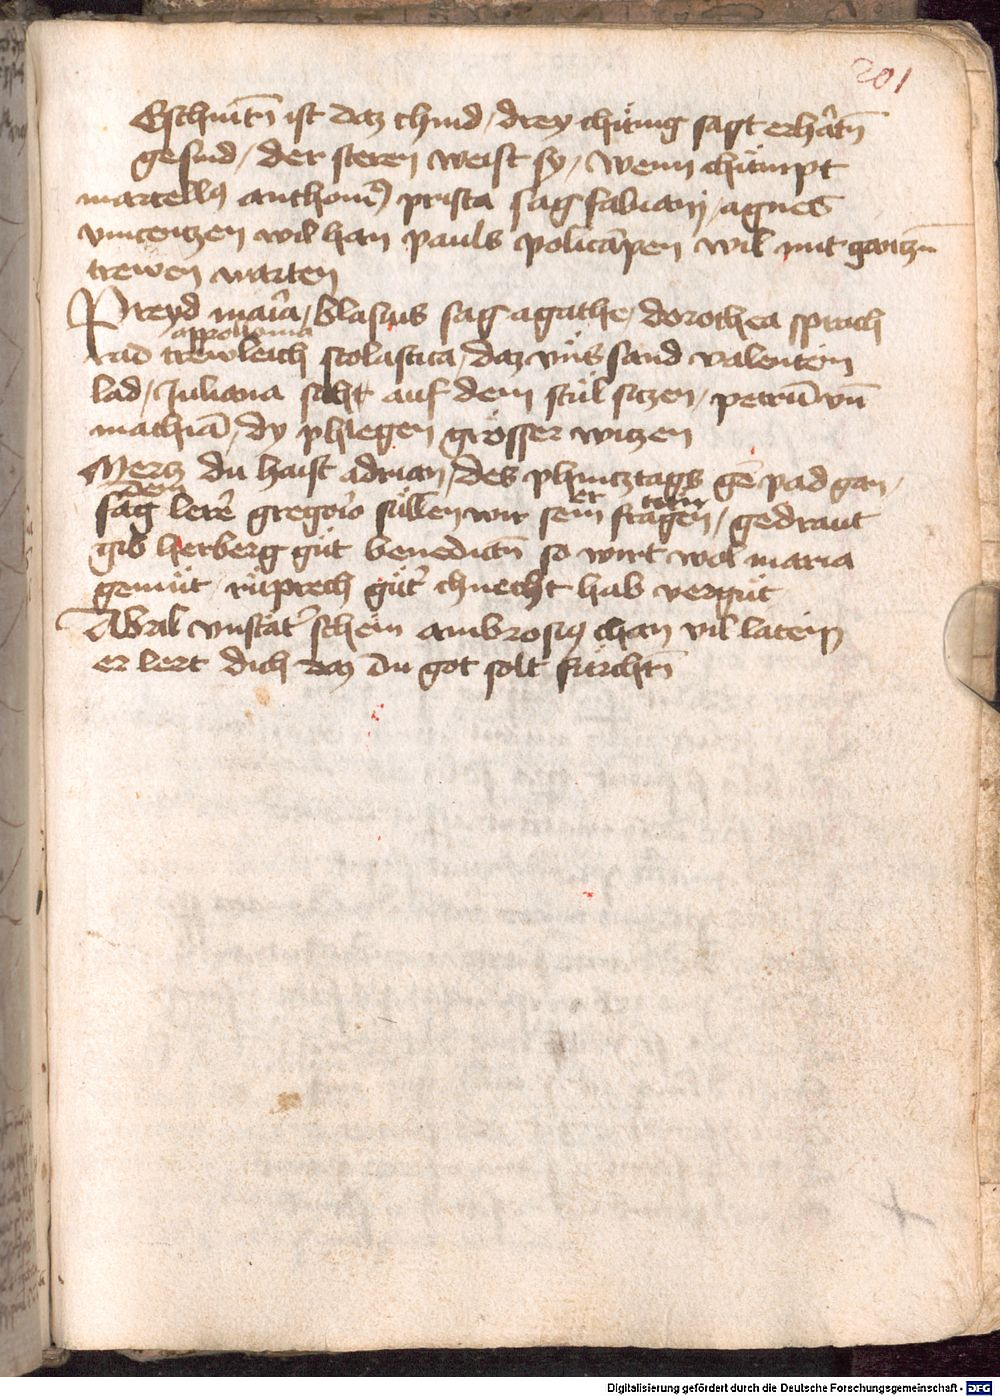 201
Eschnitn̄ ist daz chind / drey chünig sagt erhártn̄
gesind / der steren weist sy / wenn chümpt
marcellꝰ anthoniꝰ prisca sag fabiani / agnes
vincenczen wil han pauls policárpen wil mit ganczn̄
trewen warten
Preyd maria / blasius sag agathe / dorothea sprach
appollonia
vnd trewleich scolastica / daz vns sand valentein
lad / Juliana secht auf dem stul siczen / petrū vn̄
mathiā / dy phlegen grösser wiczen
Mercz du haist adrian / des phincztags gē pad gan /
dem er tuin
sag lerē gregorio süllen wir sein fragen / gedraut
gib herberg güt benedictn̄ so wirt wol maria
gemüt / rüprech güt̉ chnecht hab vergüt
Abril vnstat̉ schein ambrosiꝰ chan vil latein
er lert dich daz du got solt fürchtn̄
Digitalisierung gefördert durch die Deutsche Forschungsgemeinschaft - DFG